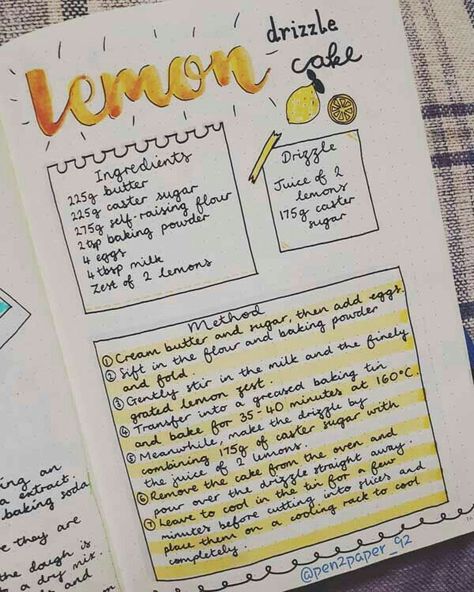 lemon drizzle
cake
Ingredients
225g butter
225g caster sugar
275g self-raising flour
2 tsp baking powder
4 eggs
4 tbsp milk
Zest of 2 lemons
Drizzle
Juice of 2
lemons
175g caster
sugar
Method
① Cream butter and sugar, then add eggs
② Sift in the flour and baking powder
and fold.
③ Gently stir in the milk and the finely
grated lemon zest.
④ Transfer into a greased baking tin
and bake for 35-40 minutes at 160°C.
⑤ Meanwhile, make the drizzle by
combining 175g of caster sugar with
the juice of 2 lemons.
⑥ Remove the cake from the oven and
pour over the drizzle straight away.
⑦ Leave to cool in the tin for a few
minutes before cutting into slices and
place them on a cooling rack to cool
completely.
@pen2paper_92
an
extract.
baking soda
they are
the dough is
a dry mix.
and